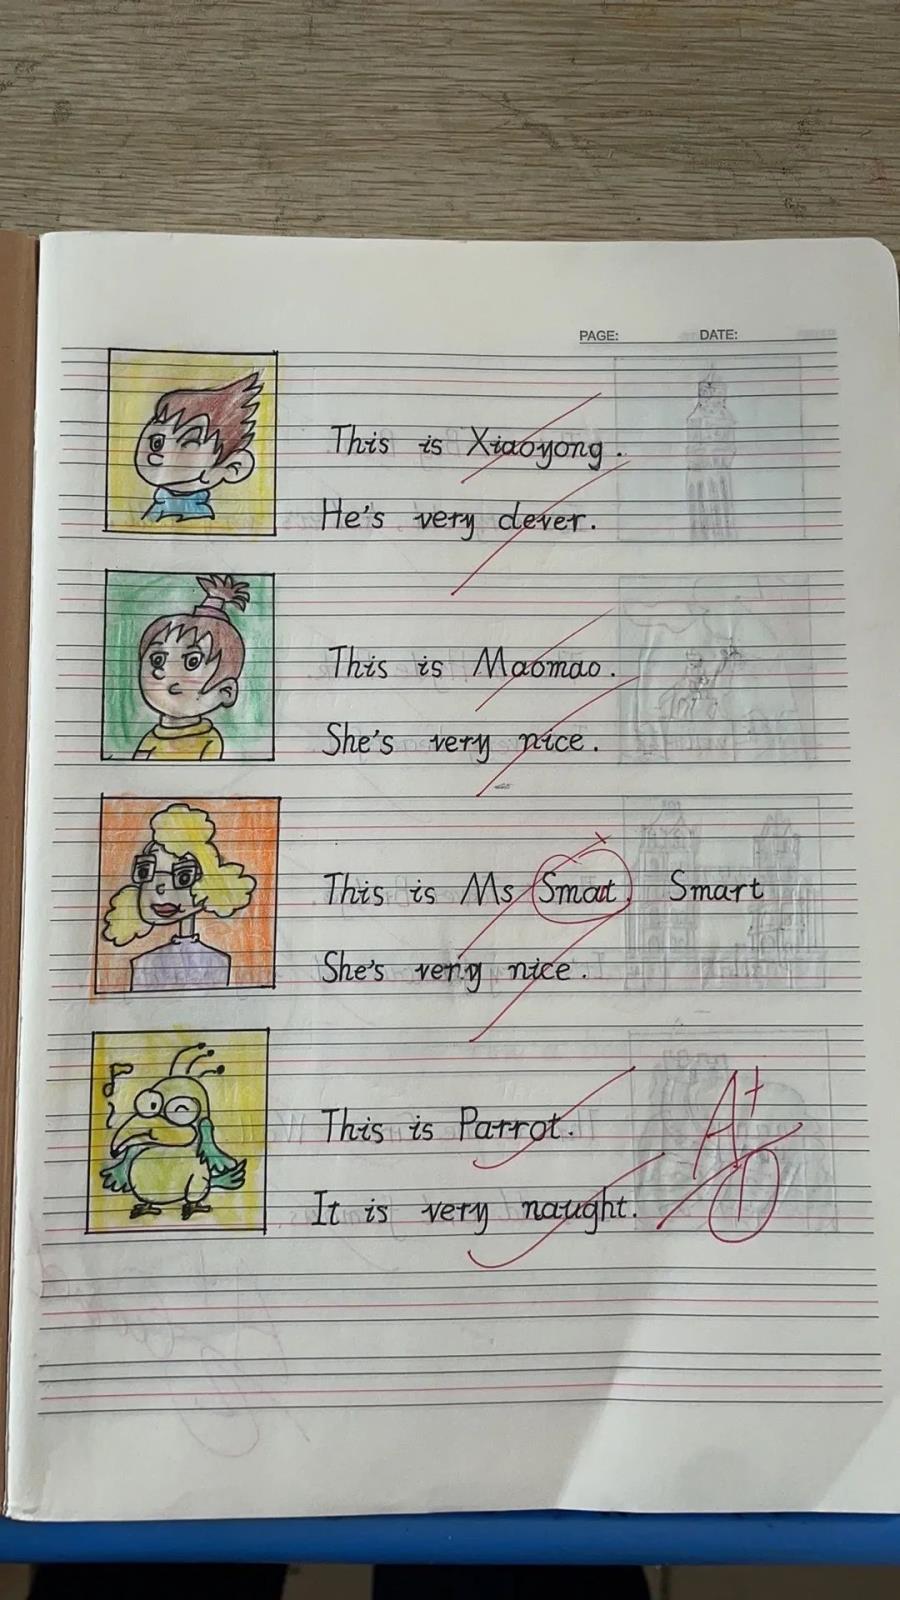 PAGE: DATE:
This is Xiaoyong.
He's very clever.
This is Maomao.
She's very nice.
This is Ms Smat. Smart
She's very nice.
This is Parrot.
It is very naught.
A+